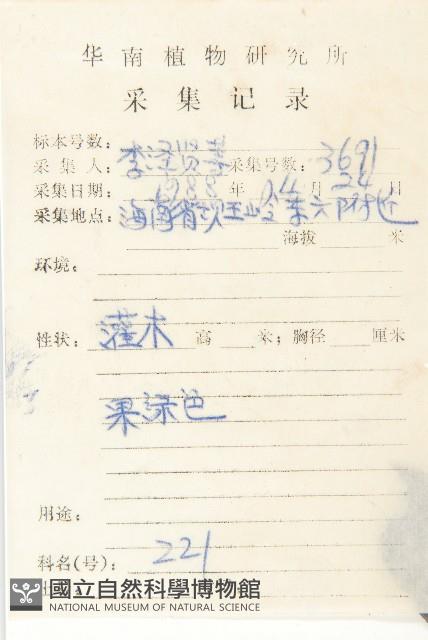 华南植物研究所
采集记录
标本号数:
采集人: 李泽贤等 采集号数: 3691
采集日期: 1988 年 04 月 24 日
采集地点: 海南省坝王岭东六附近
海拔 米
环境:
性状: 灌木 高 米; 胸径 厘米
果绿色
用途:
科名(号): 221
國立自然科學博物館
NATIONAL MUSEUM OF NATURAL SCIENCE